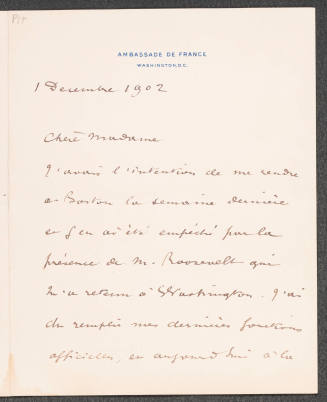 AMBASSADE DE FRANCE
WASHINGTON, D.C.
1 Decembre 1902
Chère Madame
J'avais l'intention de me rendre
à Boston la semaine dernière
et j'en ai été empêché par la
présence de M. Roosevelt qui
m'a retenu à Washington. J'ai
du remplir mes dernières fonctions
officielles, en aujourd'hui à la